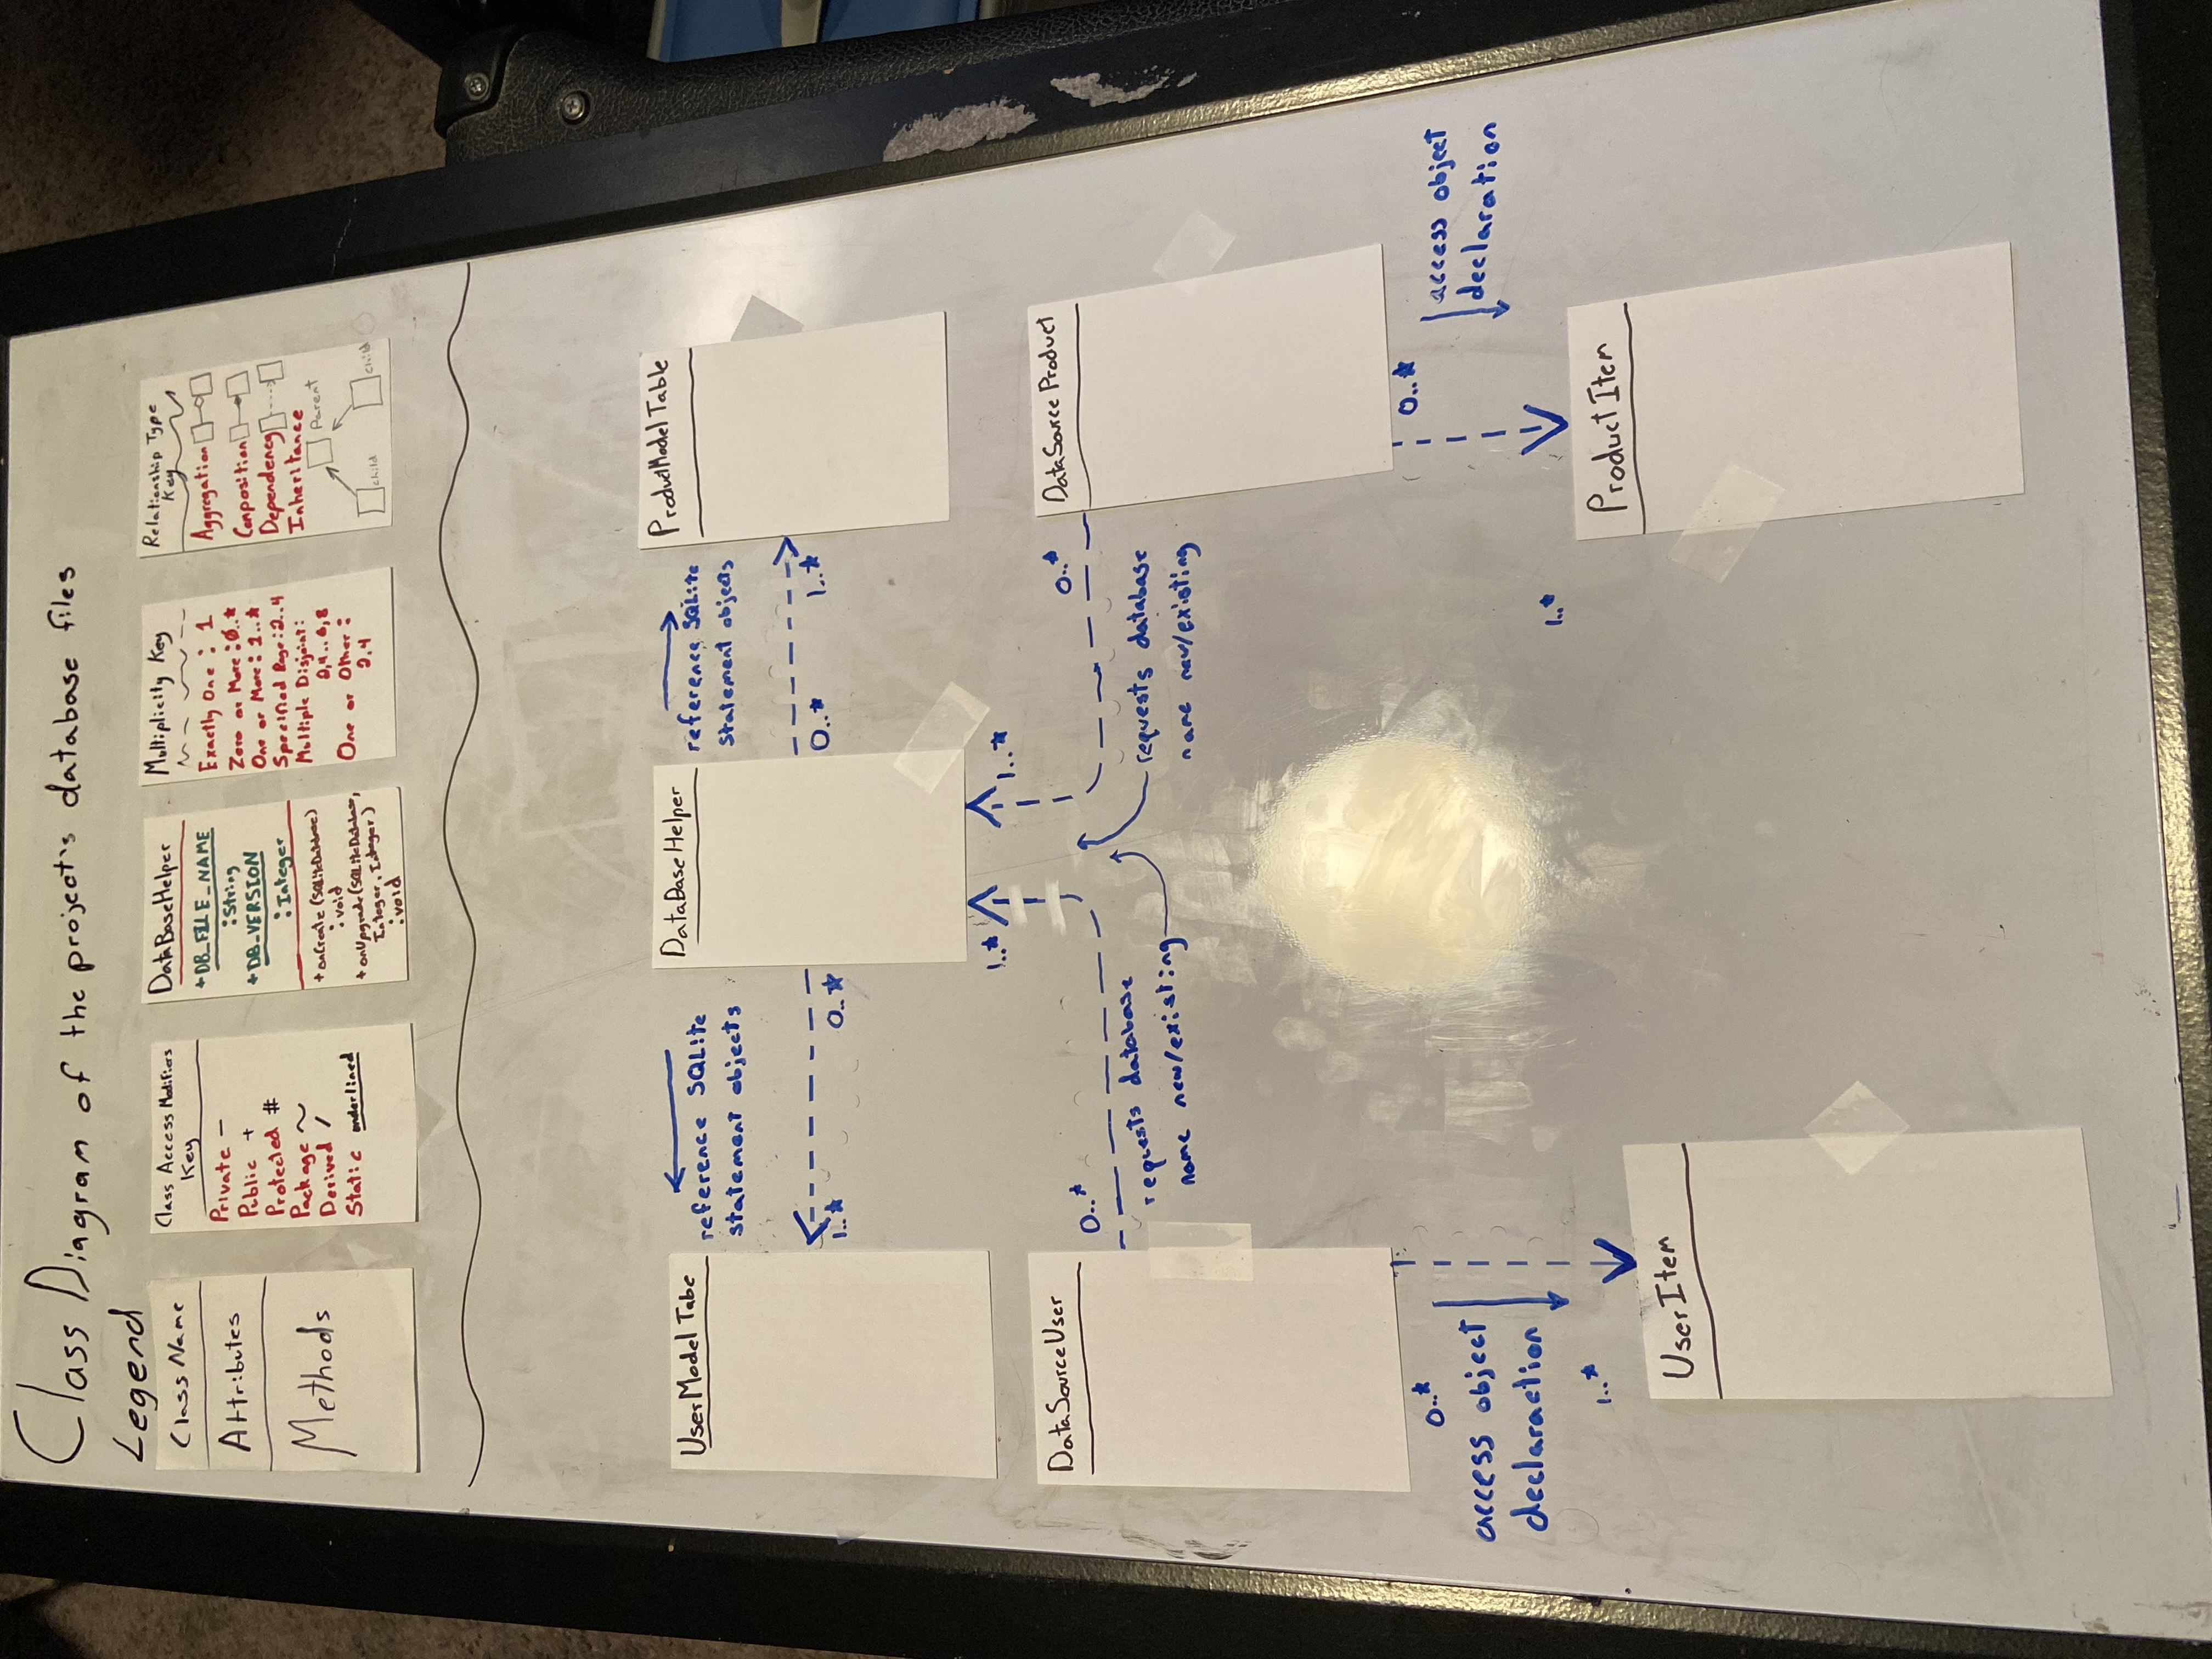 Class Diagram of the project's database files
Legend
Class Name
Attributes
Methods
Class Access Modifiers
Key
Private -
Public +
Protected #
Package ~
Derived /
Static underlined
DataBaseHelper
+DB_FILE_NAME
:String
+DB_VERSION
:Integer
+onCreate(SQLiteDatabase)
:void
+onUpgrade(SQLiteDatabase,
Integer, Integer)
:void
Multiplicity Key
Exactly One : 1
Zero or More : 0..*
One or More : 1..*
Specified Rage: 2..4
Multiple Disjoint:
2,4..6,8
One or Other :
2,4
Relationship Type
Key
Aggregation
Composition
Dependency
Inheritance
Parent
child
child
UserModel Tabe
reference SQLite
statement objects
1..*
0..*
DataBaseHelper
reference SQLite
Statement objects
0..*
1..*
ProductModel Table
1..*
1..*
DataSourceUser
0..*
requests database
name new/existing
0..*
requests database
name new/existing
DataSource Product
0..*
access object
declaraction
1..*
UserItem
0..*
access object
declaration
1..*
ProductItem